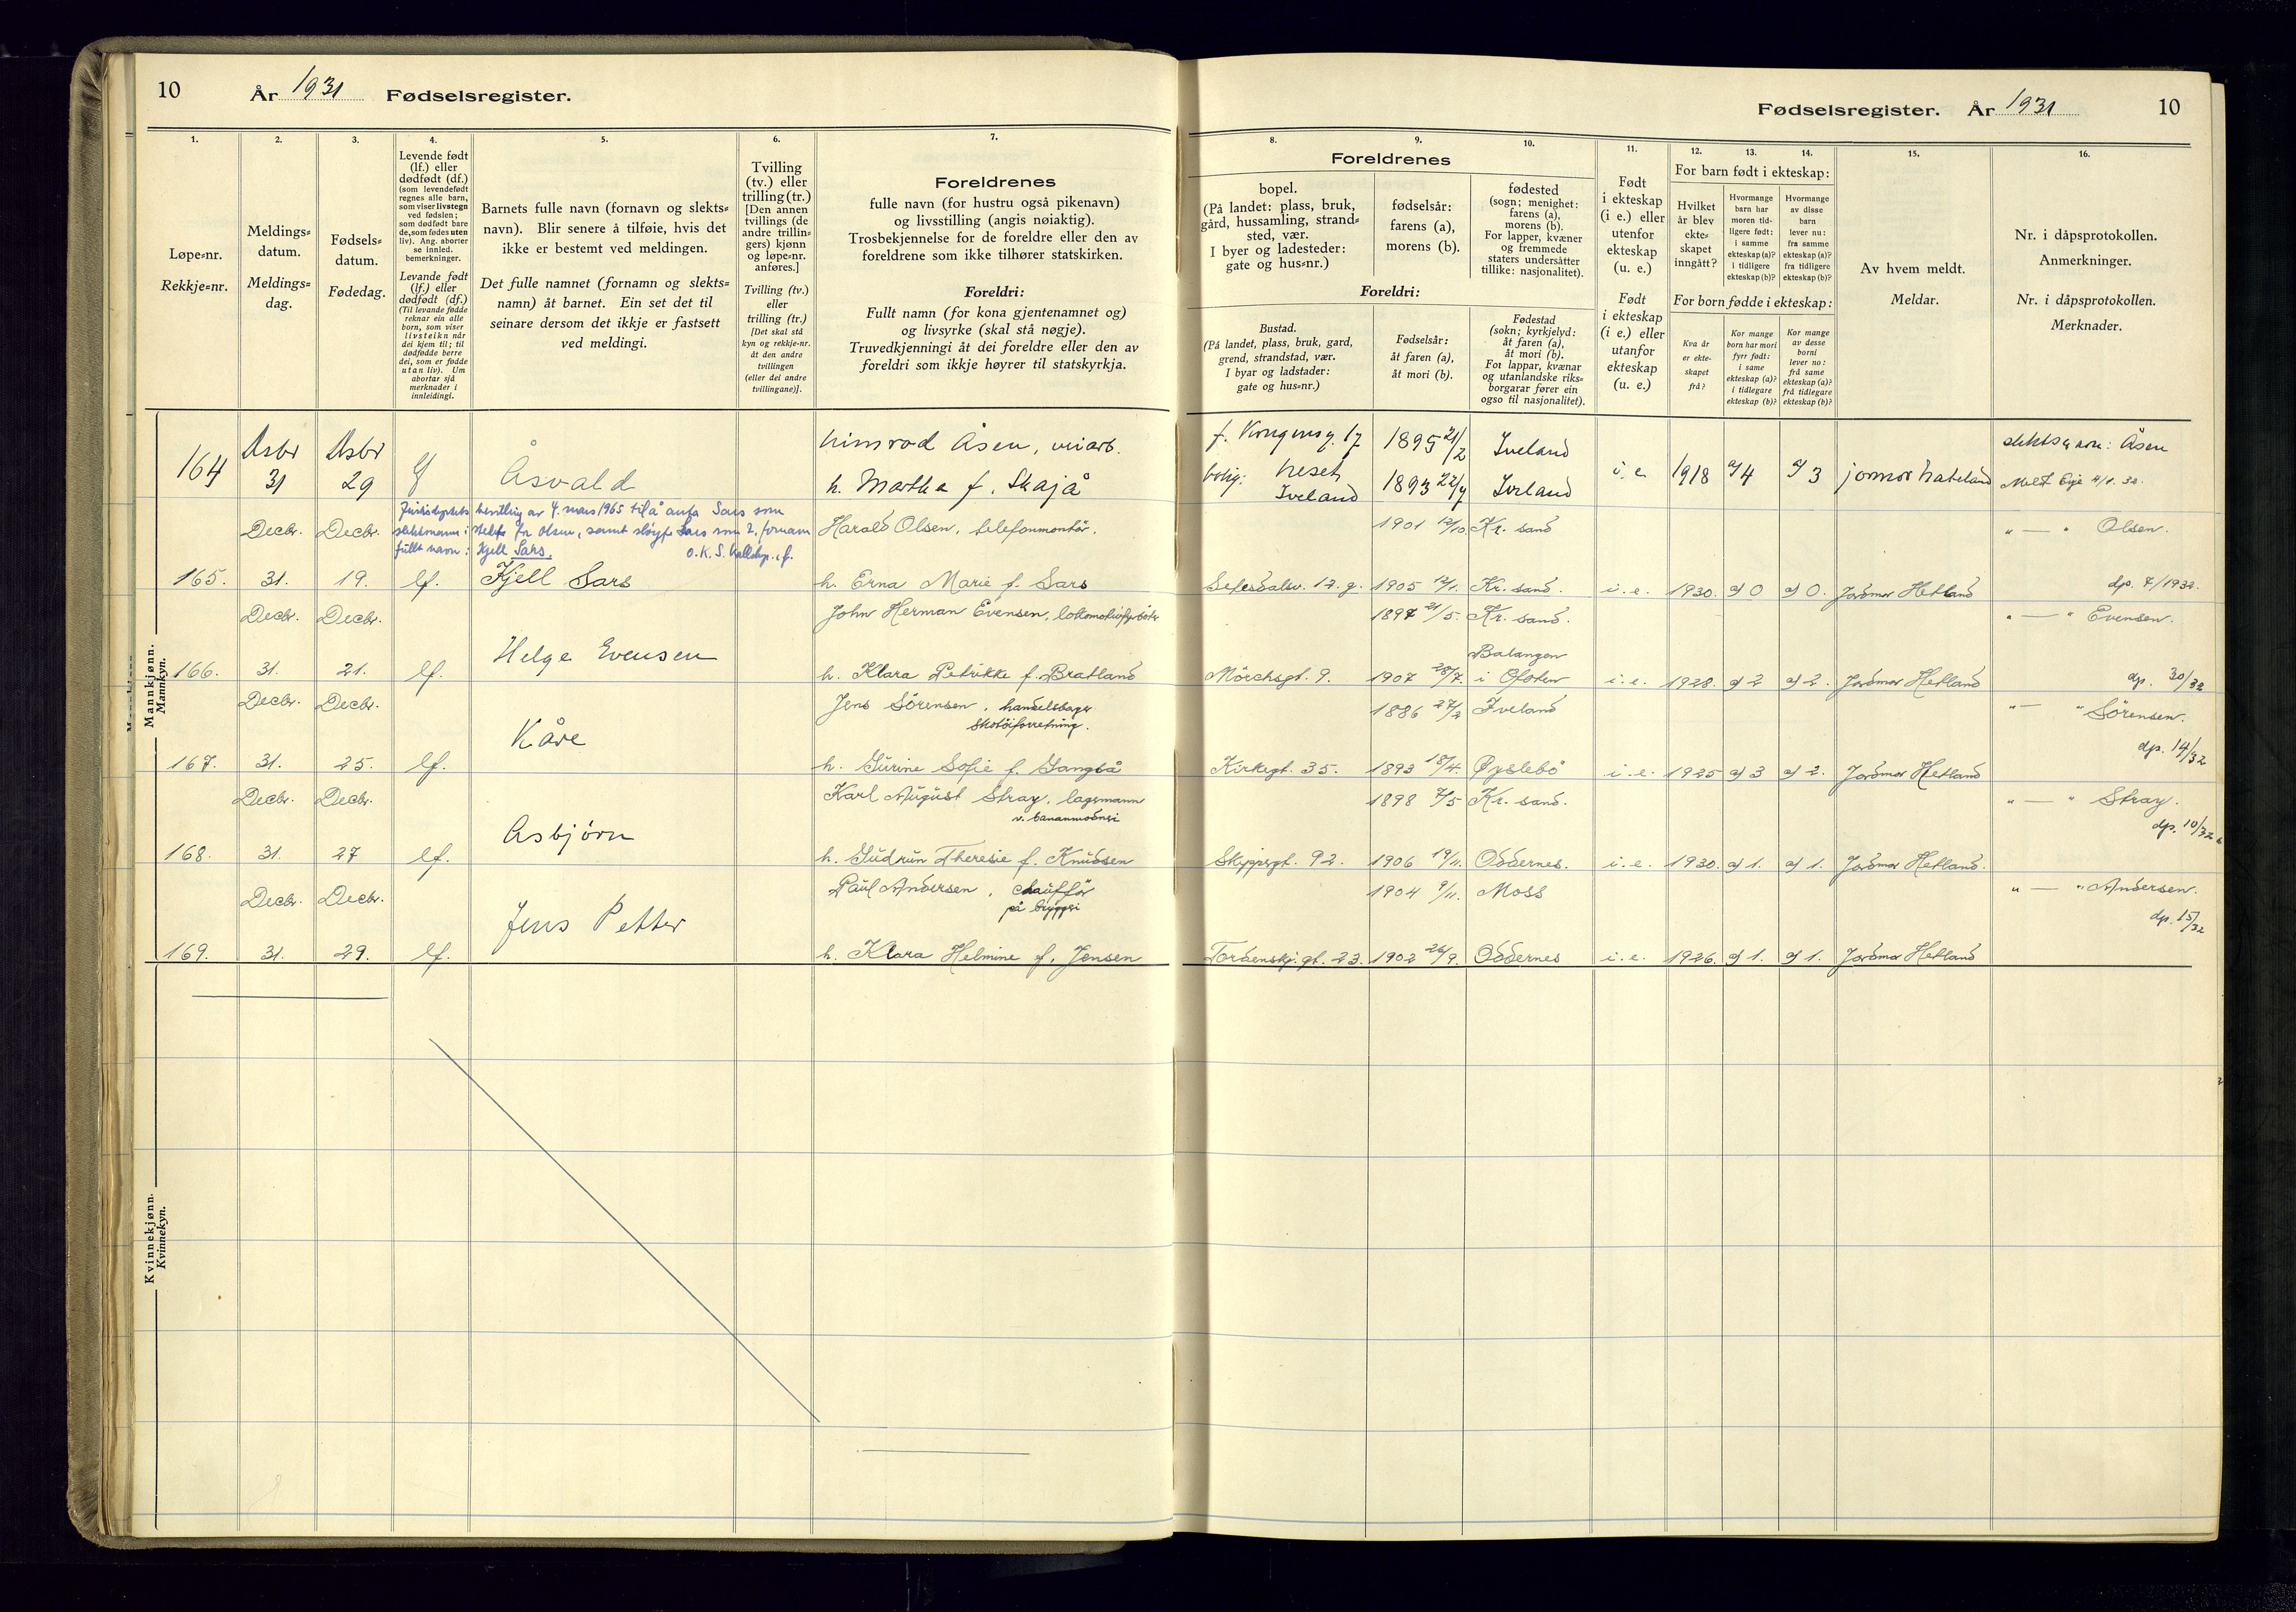 10
År 1931 Fødselsregister.
1.
2.
3.
4.
5.
6.
7.
Løpe=nr.
Rekkje=nr.
Meldings=
datum.
Meldings=
dag.
Fødsels=
datum.
Fødedag.
Levende født
(lf.) eller
dødfødt (df.)
(som levendefødt
regnes alle barn,
som viser livstegn
ved fødslen;
som dødfødt bare
de, som fødes uten
liv). Ang. aborter
se innled.
bemerkninger.
Levande født
(lf.) eller
dødfødt (df.)
(Til levande fødde
reknar ein alle
born, som viser
livsteikn når
dei kjem til; til
dødfødde berre
dei, som er fødde
utan liv). Um
abortar sjå
merknader i
innleidingi.
Barnets fulle navn (fornavn og slekts=
navn). Blir senere å tilføie, hvis det
ikke er bestemt ved meldingen.
Det fulle namnet (fornamn og slekts=
namn) åt barnet. Ein set det til
seinare dersom det ikkje er fastsett
ved meldingi.
Tvilling
(tv.) eller
trilling (tr.)
[Den annen
tvillings (de
andre trillin=
gers) kjønn
og løpe=nr.
anføres.]
Tvilling (tv.)
eller
trilling (tr.)
[Det skal stå
kyn og rekkje=nr.
åt den andre
tvillingen
(eller dei andre
tvillingane)].
Foreldrenes
fulle navn (for hustru også pikenavn)
og livsstilling (angis nøiaktig).
Trosbekjennelse for de foreldre eller den av
foreldrene som ikke tilhører statskirken.
Foreldri:
Fullt namn (for kona gjentenamnet og)
og livsyrke (skal stå nøgje).
Truvedkjenningi åt dei foreldre eller den av
foreldri som ikkje høyrer til statskyrkja.
Mankjønn.
Mannkyn.
164 31 29 Åsvald
Nimrod Åsen,
h. Martha f. Skajå
av 4. mars 1965 til å anta Sars som
slektsnavn i stedet for Olsen, samt sløyfe Sars som 2. fornavn
fullt navn: Kjell Sars.
Decbr. Decbr. Harald Olsen, telefonmontør.
165. 31. 19. lf. Kjell Sars h. Erna Marie f. Sars
Decbr. Decbr. John Herman Evensen, lokomotivfyrbøter
166. 31. 21. lf. Helge Evensen h. Klara Petrikke f. Bratland
Decbr. Decbr. Jens Sörensen,
skotöiforretning.
167. 31. 25. lf. Kåre h. Gurine Sofie f. Langbå
Decbr. Decbr. Karl August Stray, lagermann
v. bananmodneri
168. 31. 27 lf. Asbjörn h. Gudrun Theresie f. Knudsen
Decbr. Decbr. Paul Andersen, chaufför
på bryggeri
169. 31. 29. lf. Jens Petter h. Klara Helmine f. Jensen
Kvinnekjønn.
Kvinnekyn.
Fødselsregister. År 1931
10
8.
9.
10.
11.
12.
13.
14.
15.
16.
Foreldrenes
bopel.
(På landet: plass, bruk,
gård, hussamling, strand=
sted, vær.
I byer og ladesteder:
gate og hus=nr.)
fødselsår:
farens (a),
morens (b).
fødested
(sogn; menighet:
farens (a),
morens (b).
For lapper, kvæner
og fremmede
staters undersåtter
tillike: nasjonalitet).
Foreldri:
Bustad.
(På landet, plass, bruk, gard,
grend, strandstad, vær.
I byar og ladstader:
gate og hus=nr.)
Fødselsår:
åt faren (a),
åt mori (b).
Fødestad
(sokn; kyrkjelyd:
åt faren (a),
åt mori (b).
For lappar, kvænar
og utanlandske riks=
borgarar fører ein
ogso til nasjonalitet).
Født
i ekteskap
(i e.) eller
utenfor
ekteskap
(u. e.)
Født
i ekteskap
(i e.) eller
utanfor
ekteskap
(u. e.)
For barn født i ekteskap:
Hvilket
år blev
ekte=
skapet
inngått?
Hvormange
barn har
moren tid=
ligere født:
i samme
ekteskap (a)?
i tidligere
ekteskap (b)?
Hvormange
av disse
barn
lever nu:
fra samme
ekteskap (a)?
fra tidligere
ekteskap (b)?
For born fødde i ekteskap:
Kva år
er ekte=
skapet
frå?
Kor mange
born har mori
fyrr født:
i same
ekteskap (a)?
i tidlegare
ekteskap (b)?
Kor mange
av desse
borni
lever no:
frå same
ekteskap (a)?
frå tidlegare
ekteskap (b)?
Av hvem meldt.
Meldar.
Nr. i dåpsprotokollen.
Anmerkninger.
Nr. i dåpsprotokollen.
Merknader.
f. Kongensg. 17 1895 21/2 Iveland slektsnavn: Åsen
bolig: Neset
Iveland 1893 22/7 Iveland i. e. 1918 a) 4 a) 3
1901 12/10 Kr. sand " — " Olsen.
Setesdalsv. 12. g. 1905 12/1. Kr. sand. i. e. 1930. a) 0 a) 0. Jordmor Hetland dp. 7/1932.
1897 21/5. Kr. sand. " — " Evensen.
Mörchsgt. 9. 1907 28/7. Balangen
i Ofoten i. e. 1928. a) 2 a) 2. Jordmor Hetland dp. 30/32
1886 27/2 Iveland " — " Sörensen.
Kirkegt. 35. 1893 18/4. Øyslebö i. e. 1925 a) 3 a) 2. Jordmor Hetland dp. 14/32
1898 7/5 Kr. sand. " — " Stray.
dp. 10/32
Skippergt. 92. 1906 19/11. Oddernes. i. e. 1930. a) 1. a) 1. Jordmor Hetland.
1904 9/11. Moss " — " Andersen.
dp. 15/32
Tordenskj. gt. 23. 1902 26/9. Oddernes i. e. 1926. a) 1. a) 1. Jordmor Hetland